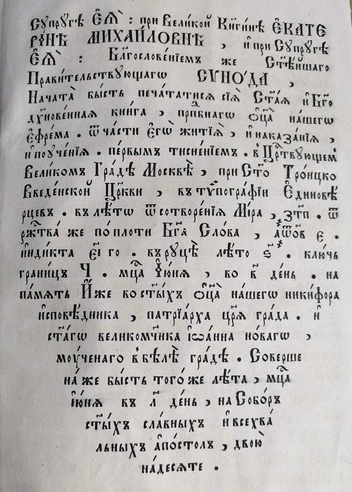 Супругѣ Е҆ѧ̀: при Великой Кнѧгинѣ ЕКАТЕ
РИНѢ МИХАЙЛОВНѢ, и҆ при Супругѣ
Е҆ѧ̀: Бл҃гословенїемъ же Ст҃ѣйшаго
Правительствующагѡ СѴНОДА,
Начата̀ бы́сть печа́татисѧ сїѧ̀ Ст҃а́ѧ и҆ Бг҃о
дꙋхнове́ннаѧ кни́га, прп҇бнагѡ ѻ҆ц҃а̀ на́шегѡ
Е҆фре́ма. ѿ ча́сти є҆гѡ̀ житїѧ̀, и҆ наказа̑нїѧ,
и҆ поуче̑нїѧ. пе́рвымъ тисне́нїемъ. в Црⷭ҇твующемъ
Вели́комъ Гра́дѣ Москвѣ̀, при Ст҃о Тро́ицко
Введе́нской Цр҃кви, въ тѷпогра́фїи Е҆диновѣ
рцевъ. въ лѣ́то ѿ сотворе́нїѧ Мі́ра, ҂зтп. ѿ
ржⷭ҇тва̀ же по пло́ти Бг҃а Сло́ва,
и҆нді́кта є҃і го. въ рꙋцѣ̀ лѣ́то ключь
грани́цъ Ч. мⷭ҇ца І҆ꙋ́нїѧ, во в҃ де́нь. на
па́мѧть И҆́же во ст҃ы́хъ ѻ҆ц҃а̀ на́шегѡ ники́фора
и҆сповѣ́дника, патрїа́рха цр҃ѧ гра́да. и҆
ст҃а́гѡ великомч҃ника і҆ѡа́нна но́вагѡ,
мо́ученаго в бѣ́лѣ гра́дѣ. Соверше
на́ же бы́сть тогѡ́ же лѣ́та, мⷭ҇ца
і҆ꙋ́нїѧ въ л҃ де́нь, на Собо́ръ
ст҃ы́хъ сла́вныхъ и҆ всехва́
льныхъ а҆пⷭ҇толъ, двою̀
на́десѧте.